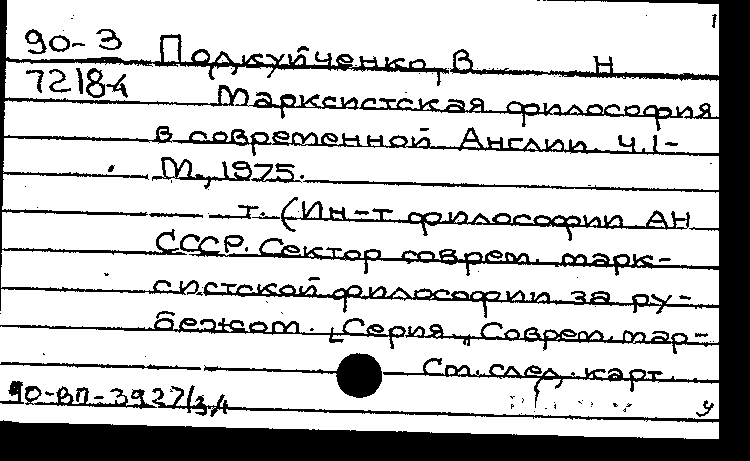 1
90-3 Подкуйченко, В Н
7218-4 Марксистская философия
в современной Англии. Ч.1-
М., 1975.
т. (Ин-т философии АН
СССР. Сектор соврем. марк-
систской философии за ру-
бежом. „Серия„ Соврем. мар-
См. след. карт.
90-ВП-3927/3,4
у